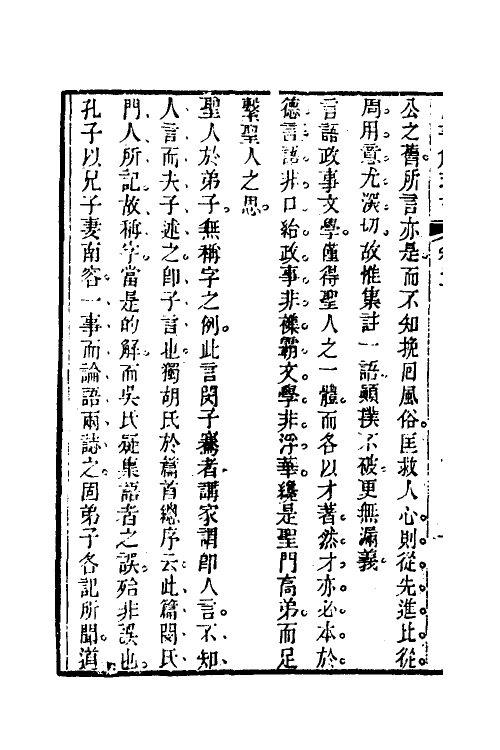 公之舊所言亦是而不知挽囘風俗匡救人心則從先進比從
周用意尤深切故惟集註一語顛撲不破更無漏義
言語政事文學僅得聖人之一體而各以才著然才亦必本於
德言語非口給政事非襍霸文學非浮華纔是聖門高弟而足
繫聖人之思
聖人於弟子無稱字之例此言閔子騫者講家謂卽人言不知
人言而夫子述之卽子言也獨胡氏於篇首總序云此篇閔氏
門人所記故稱字當是的解而吳氏疑集語者之誤殆非誤也
孔子以兄子妻南容一事而論語兩誌之固弟子各記所聞道